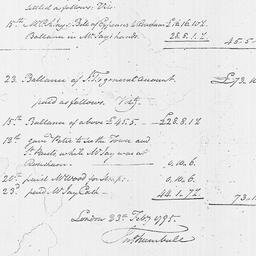 settled as follows: Viz.
15th Mr Philips: Bill of Expences to Evesham £16.16.10½
Ballance in Mr Jay's hands. 28.8.1.½
45.5
23. Ballance of general amount. £73.10
paid as follows. Viz.
15th Ballance of above £45.5 — £28.8.1½
18th gave Peter to see the Town and
St Pauls, while Mr Jay was at
0.10.6.
20th paid Mr Wood for Soap: 0.10.6.
23d paid Mr Jay Cash — 44.1.7½ 73.1
London 23d Feby 1795.
Jno Trumbull